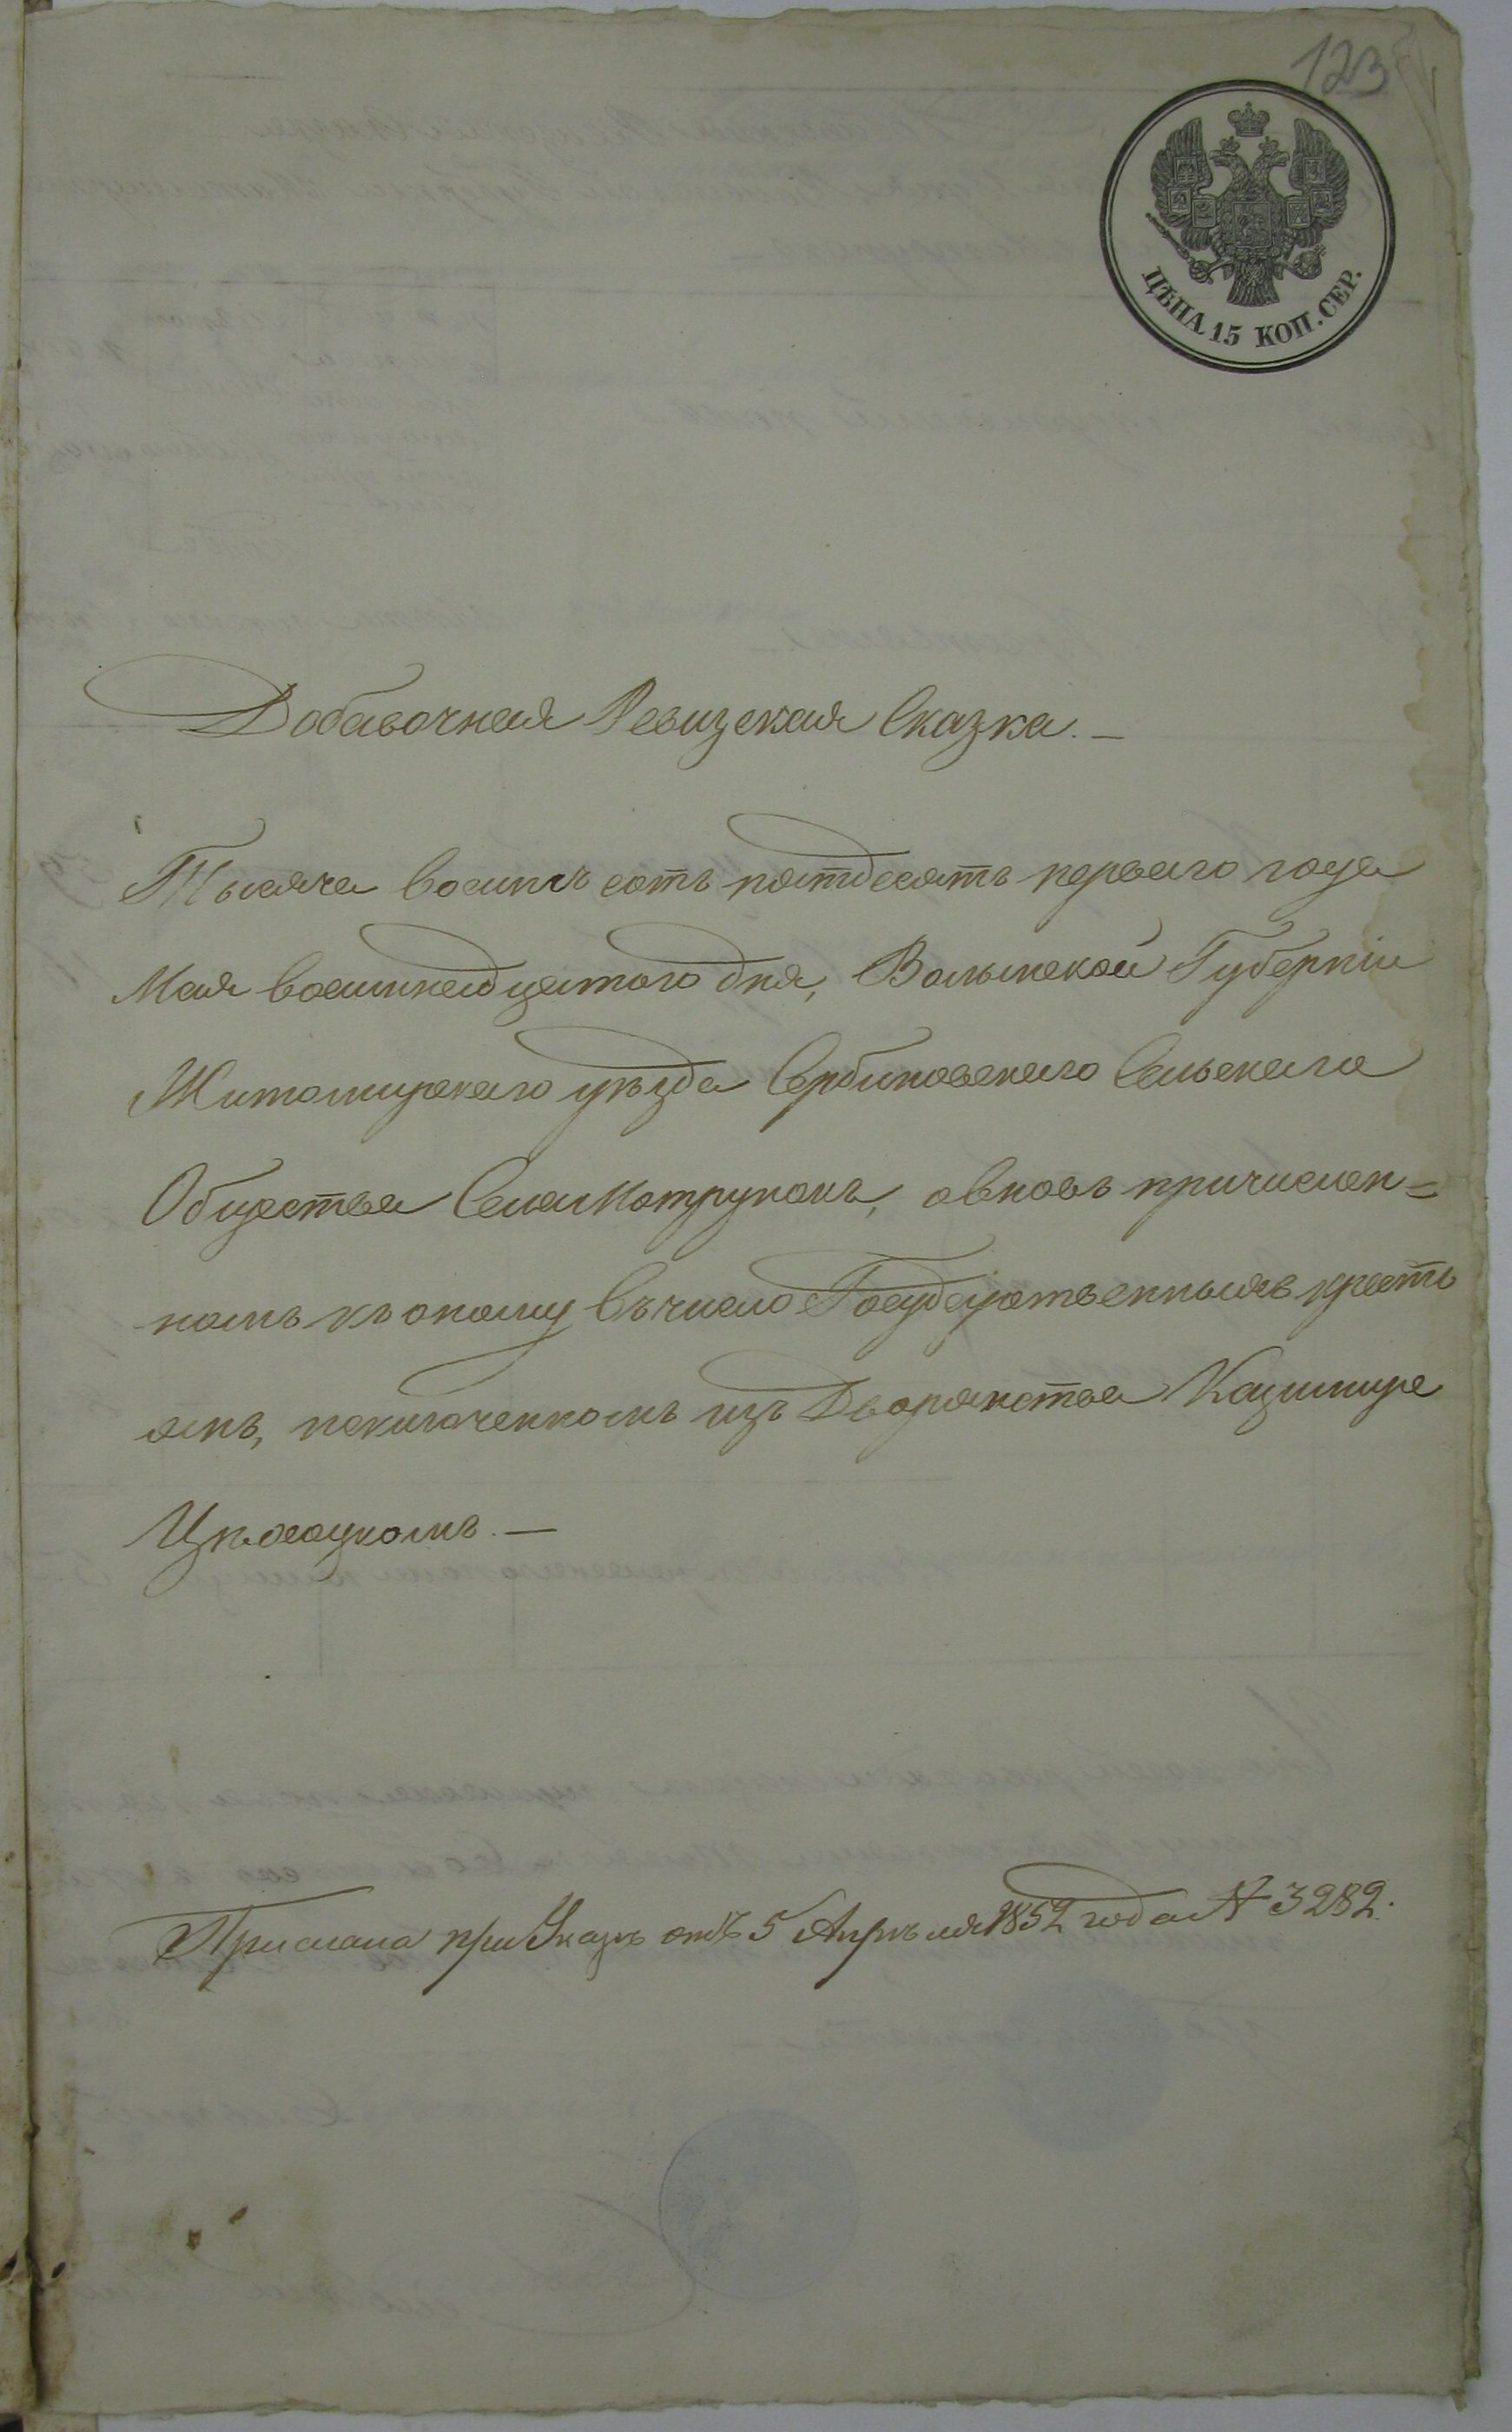 123
ЦѢНА 15 КОП. СЕР.
Добавочная Ревизская Сказка.—
Тысяча восимъ сотъ пятдесятъ перваго года
Мая восимнадцатого дня, Волынской Губерніи
Житомирскаго уѣзда Сербиновскаго Сельскаго
Общества Села Мотрунокъ, овновь причислен=
номъ къ оному въ число Государственныхъ крестъ
янъ, исключенномъ изъ Дворянства Казимире
Прислана при Указѣ отъ 5 Апрѣля 1852 года № 3282.